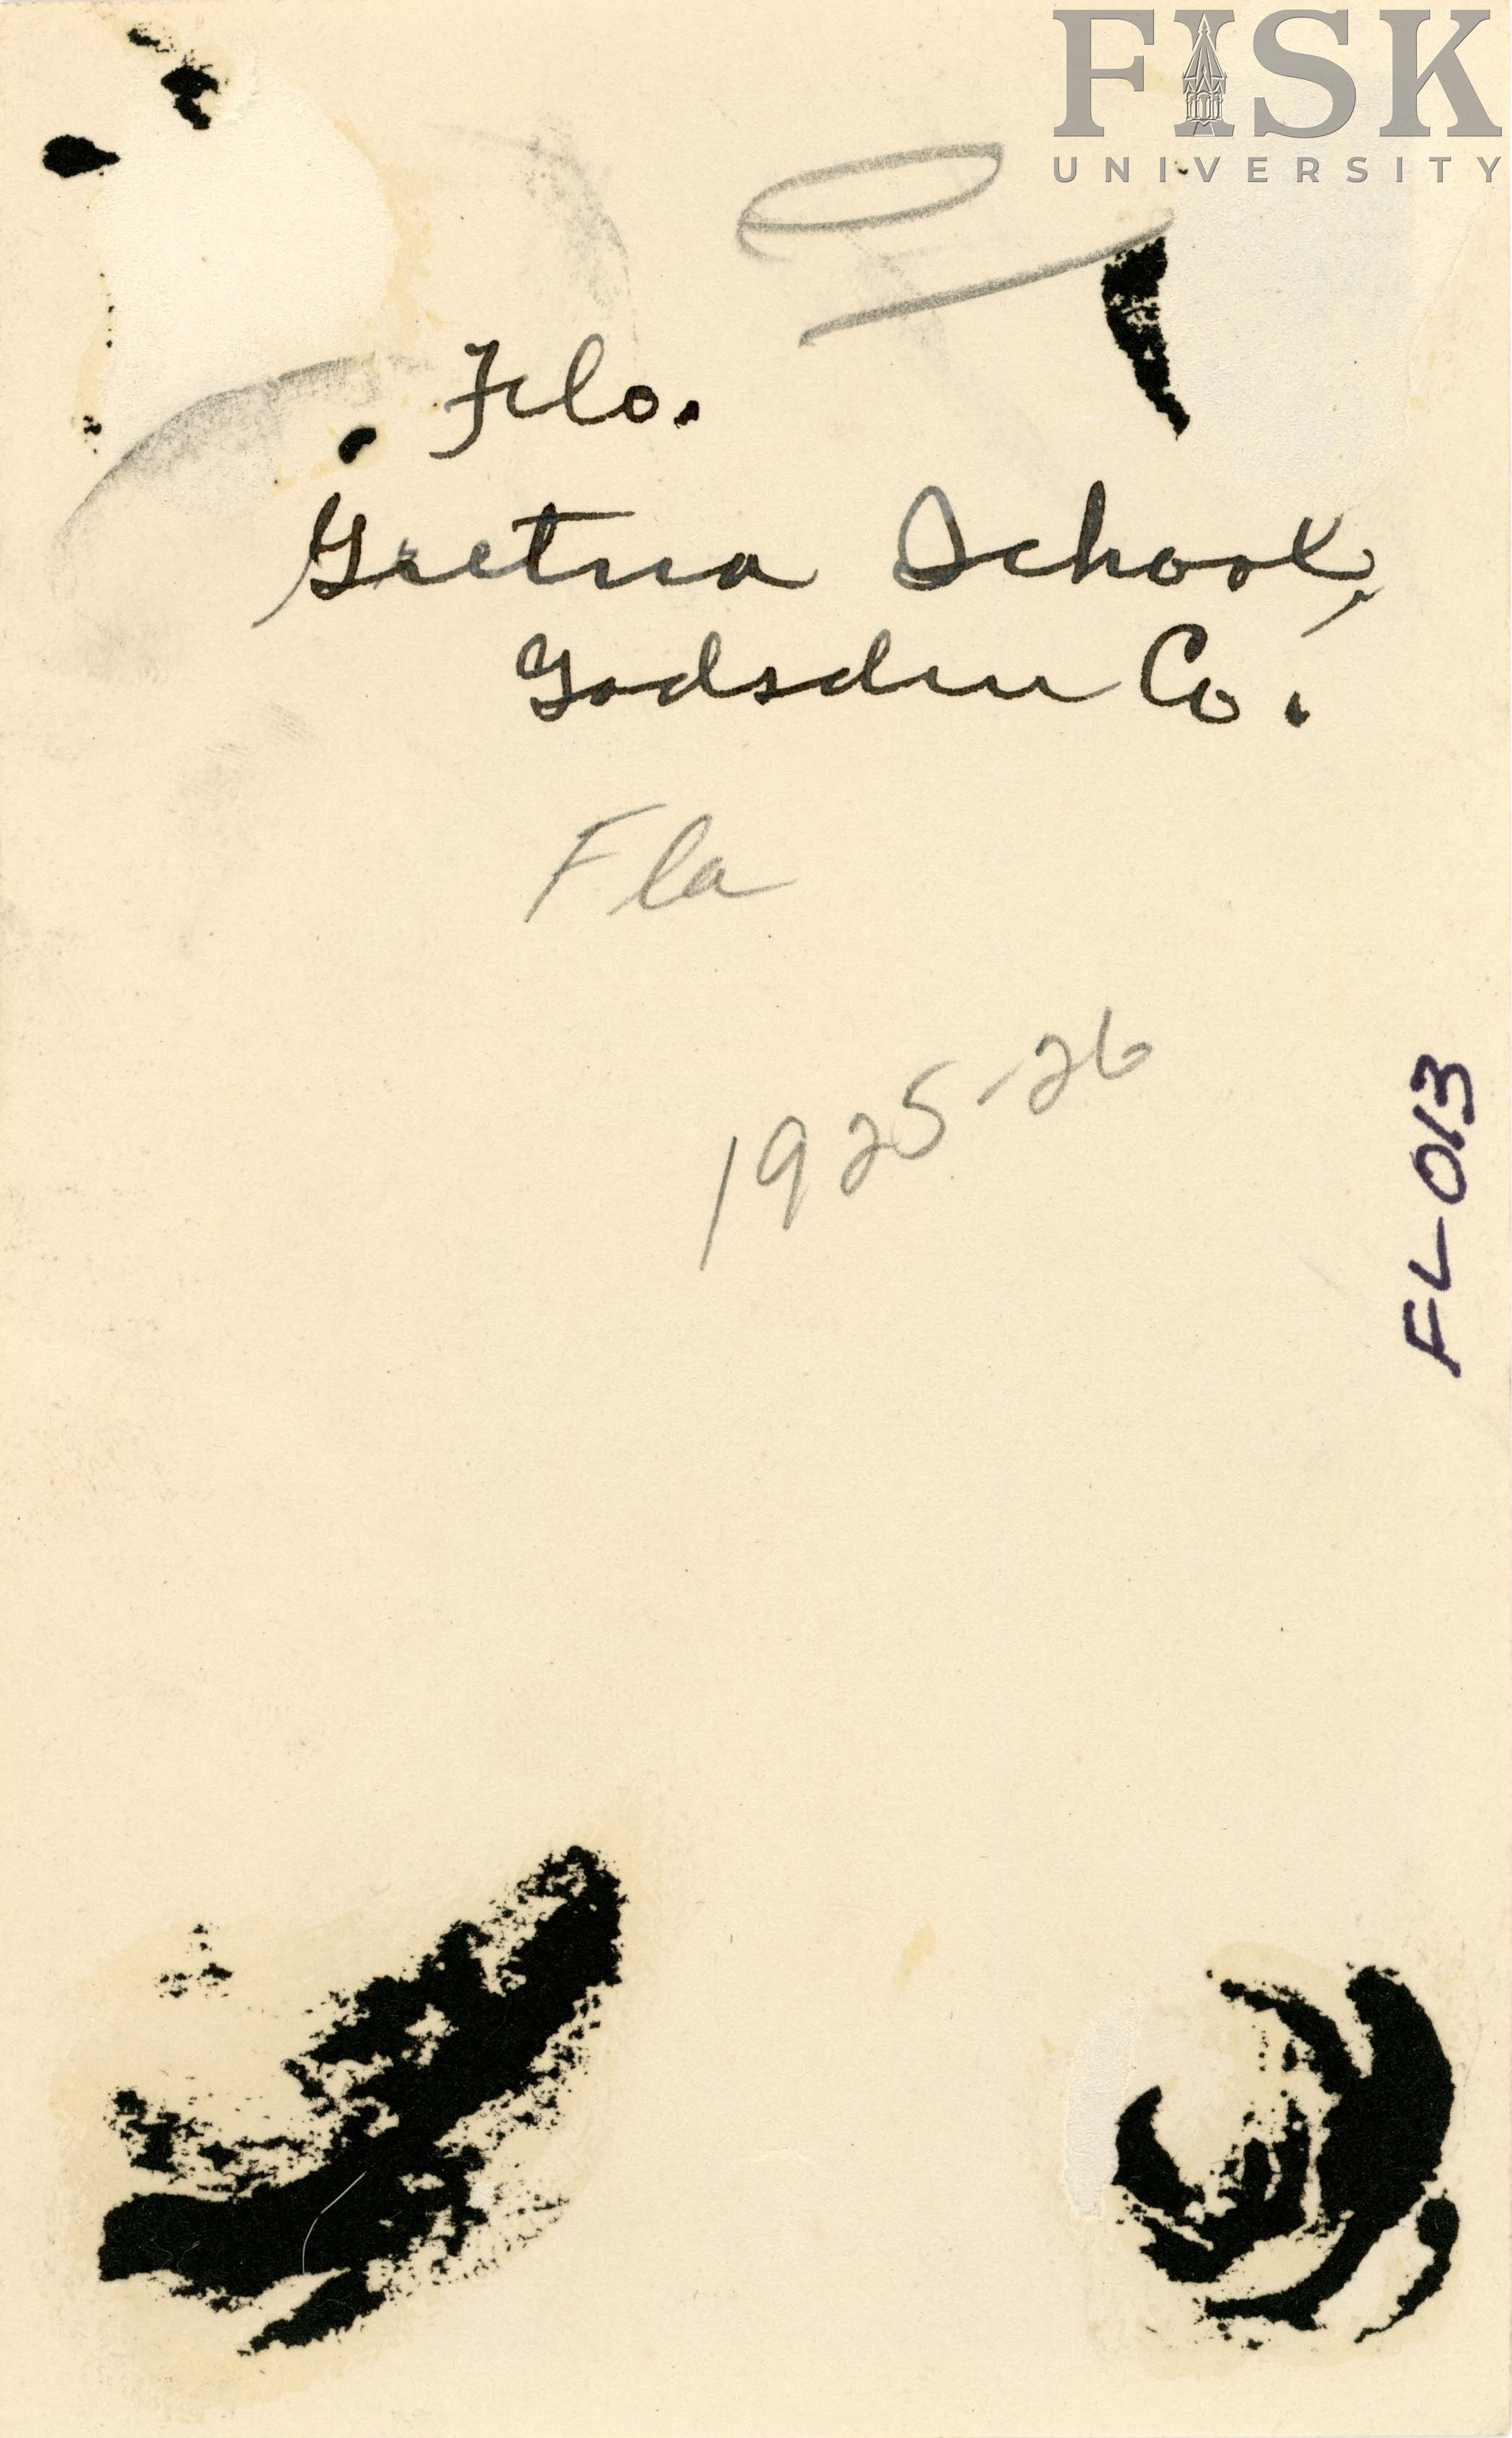 FISK
UNIVERSITY
Fla.
Gretna School,
Gadsden Co.
Fla
1925-26
FL-013